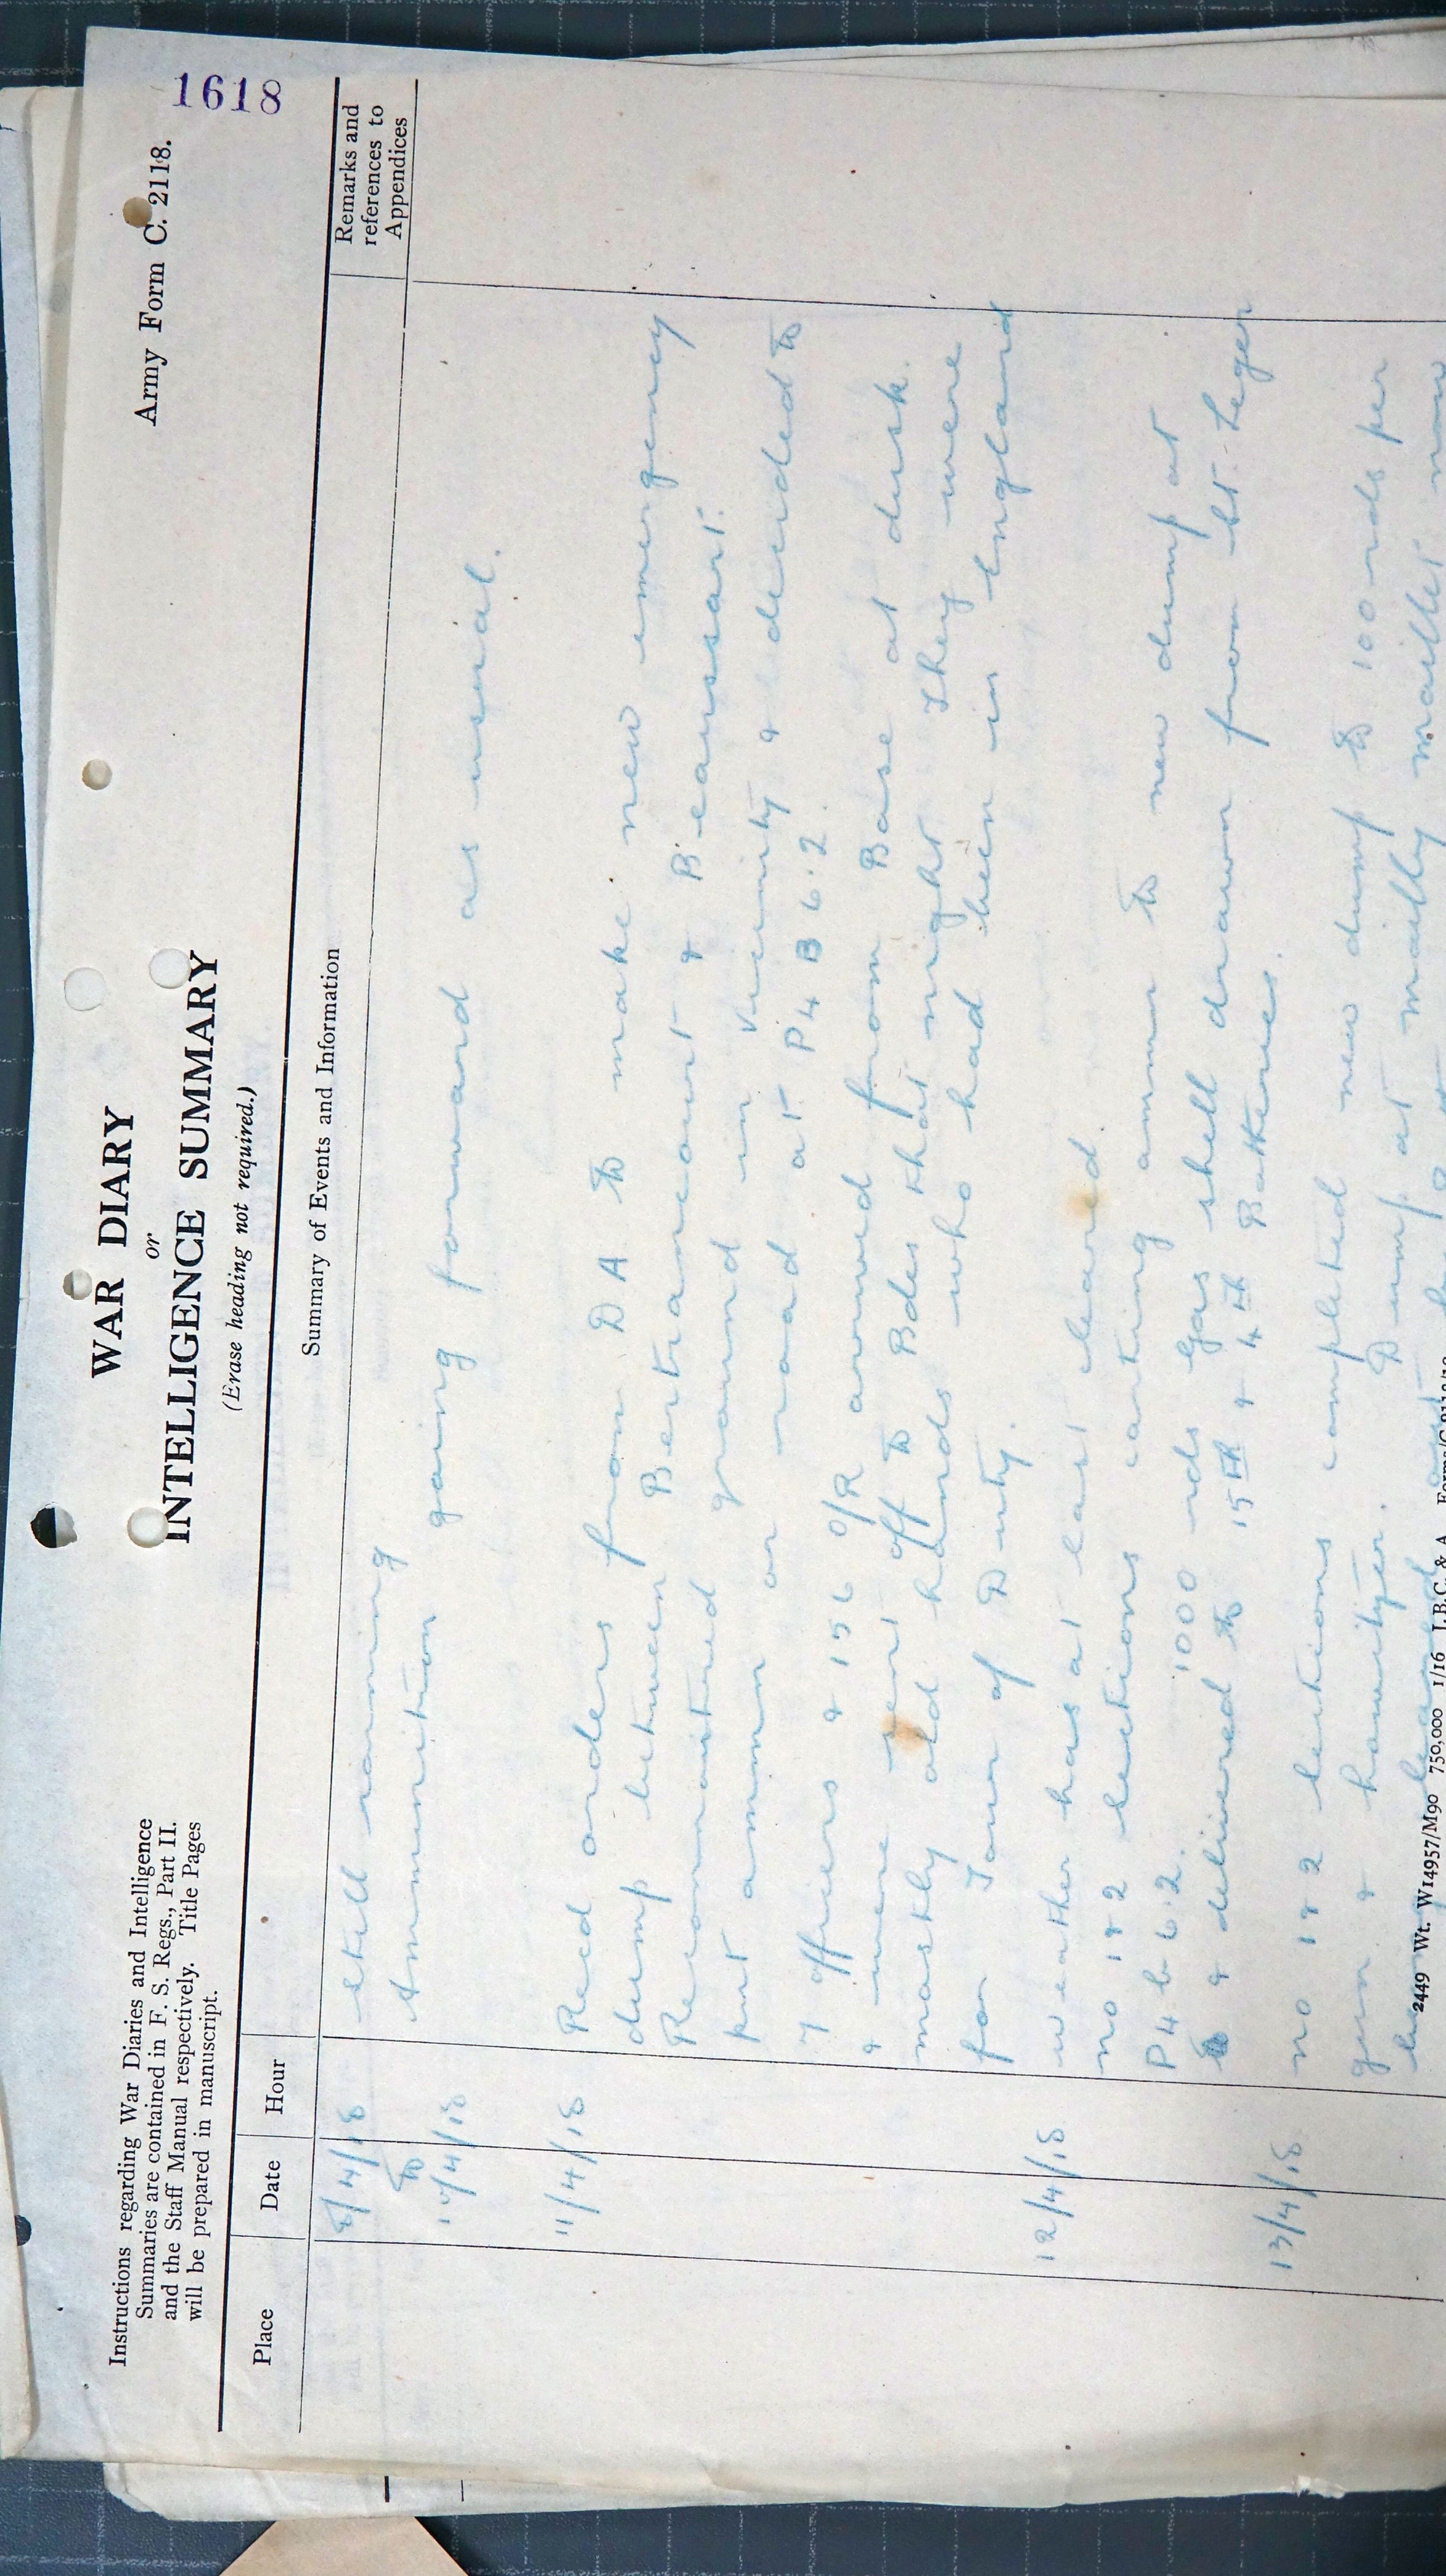 1618
Army Form C. 2118.
WAR DIARY
or
INTELLIGENCE SUMMARY
(Erase heading not required.)
Instructions regarding War Diaries and Intelligence
Summaries are contained in F. S. Regs., Part II.
and the Staff Manual respectively. Title Pages
will be prepared in manuscript.
Place Date Hour Summary of Events and Information Remarks and references to Appendices
8/4/18 Still raining
to Ammunition going forward as usual.
10/4/18
11/4/18 Recd orders from D A to make new emergency
dump between Bertrancourt & Beaussart.
Reconnoitred ground in vicinity & decided to
put ammn on road at P4 B 6.2.
7 officers & 156 O/R arrived from Base at dusk.
& were sent off to Bdes that night They were
mostly old hands who had been in England
for Tour of Duty.
12/4/18 Weather has at last cleared
No 1 & 2 Sections carting ammn to new dump at
P4 b 6.2. 1000 rds Gas shell drawn from St Leger
& delivered to 15th & 4th Batteries.
13/4/18 No 1 & 2 Sections completed new dump to 100 rds per
gun & howitzer. Dump at Mailly Maillet now
2449 Wt. W14957/M90 750,000 1/16 J.B.C. & A. Forms/C.2118/12